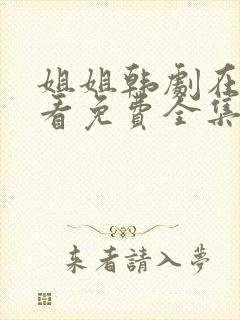 姐姐韩劇在
看免費全集
来者請入夢